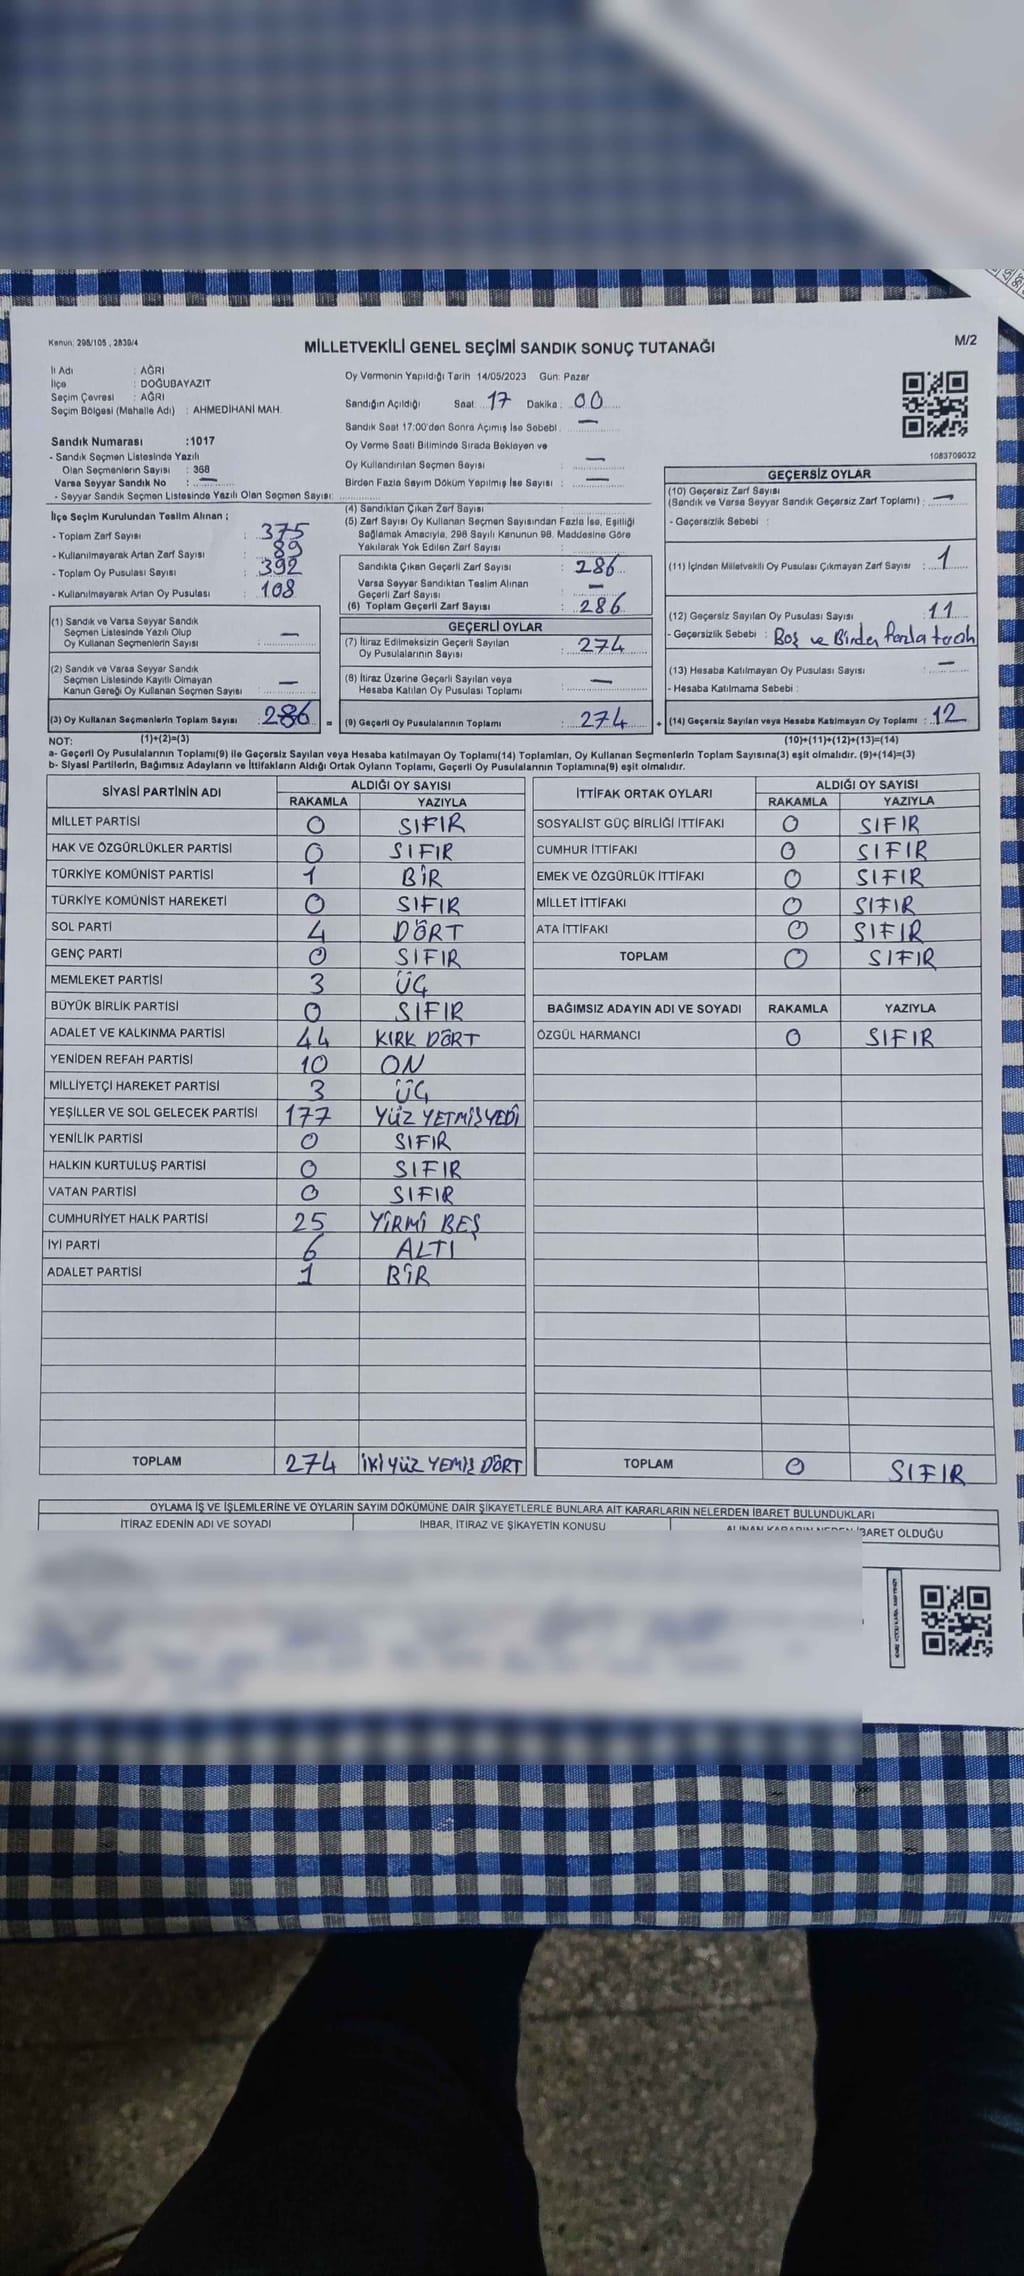 Kanun: 298/105 , 2839/4
MİLLETVEKİLİ GENEL SEÇİMİ SANDIK SONUÇ TUTANAĞI
M/2
İl Adı : AĞRI
İlçe : DOĞUBAYAZIT
Seçim Çevresi : AĞRI
Seçim Bölgesi (Mahalle Adı) : AHMEDİHANİ MAH.
Sandık Numarası :1017
- Sandık Seçmen Listesinde Yazılı
Olan Seçmenlerin Sayısı : 368
Varsa Seyyar Sandık No : —
- Seyyar Sandık Seçmen Listesinde Yazılı Olan Seçmen Sayısı:
Oy Vermenin Yapıldığı Tarih 14/05/2023 Gün: Pazar
Sandığın Açıldığı Saat 17 Dakika: 00
Sandık Saat 17:00'den Sonra Açılmış İse Sebebi —
Oy Verme Saati Bitiminde Sırada Bekleyen ve
Oy Kullandırılan Seçmen Sayısı : —
Birden Fazla Sayım Döküm Yapılmış İse Sayısı : —
1083709032
İlçe Seçim Kurulundan Teslim Alınan ;
- Toplam Zarf Sayısı : 375
- Kullanılmayarak Artan Zarf Sayısı : 89
- Toplam Oy Pusulası Sayısı : 392
- Kullanılmayarak Artan Oy Pusulası : 108
(1) Sandık ve Varsa Seyyar Sandık
Seçmen Listesinde Yazılı Olup
Oy Kullanan Seçmenlerin Sayısı : —
(2) Sandık ve Varsa Seyyar Sandık
Seçmen Listesinde Kayıtlı Olmayan
Kanun Gereği Oy Kullanan Seçmen Sayısı : —
(3) Oy Kullanan Seçmenlerin Toplam Sayısı : 286
(4) Sandıktan Çıkan Zarf Sayısı :
(5) Zarf Sayısı Oy Kullanan Seçmen Sayısından Fazla İse, Eşitliği
Sağlamak Amacıyla, 298 Sayılı Kanunun 98. Maddesine Göre
Yakılarak Yok Edilen Zarf Sayısı :
Sandıkta Çıkan Geçerli Zarf Sayısı : 286
Varsa Seyyar Sandıktan Teslim Alınan
Geçerli Zarf Sayısı : —
(6) Toplam Geçerli Zarf Sayısı : 286
GEÇERLİ OYLAR
(7) İtiraz Edilmeksizin Geçerli Sayılan
Oy Pusulalarının Sayısı : 274
(8) İtiraz Üzerine Geçerli Sayılan veya
Hesaba Katılan Oy Pusulası Toplamı : —
= (9) Geçerli Oy Pusulalarının Toplamı : 274
GEÇERSİZ OYLAR
(10) Geçersiz Zarf Sayısı
(Sandık ve Varsa Seyyar Sandık Geçersiz Zarf Toplamı) : —
- Geçersizlik Sebebi :
(11) İçinden Milletvekili Oy Pusulası Çıkmayan Zarf Sayısı : 1
(12) Geçersiz Sayılan Oy Pusulası Sayısı : 11
- Geçersizlik Sebebi : Boş ve Birden fazla tercih
(13) Hesaba Katılmayan Oy Pusulası Sayısı : —
- Hesaba Katılmama Sebebi :
+ (14) Geçersiz Sayılan veya Hesaba Katılmayan Oy Toplamı : 12
NOT: (1)+(2)=(3) (10)+(11)+(12)+(13)=(14)
a- Geçerli Oy Pusulalarının Toplamı(9) ile Geçersiz Sayılan veya Hesaba katılmayan Oy Toplamı(14) Toplamları, Oy Kullanan Seçmenlerin Toplam Sayısına(3) eşit olmalıdır. (9)+(14)=(3)
b- Siyasi Partilerin, Bağımsız Adayların ve İttifakların Aldığı Ortak Oyların Toplamı, Geçerli Oy Pusulalarının Toplamına(9) eşit olmalıdır.
SİYASİ PARTİNİN ADI ALDIĞI OY SAYISI
RAKAMLA YAZIYLA
MİLLET PARTİSİ 0 SIFIR
HAK VE ÖZGÜRLÜKLER PARTİSİ 0 SIFIR
TÜRKİYE KOMÜNİST PARTİSİ 1 BİR
TÜRKİYE KOMÜNİST HAREKETİ 0 SIFIR
SOL PARTİ 4 DÖRT
GENÇ PARTİ 0 SIFIR
MEMLEKET PARTİSİ 3 ÜÇ
BÜYÜK BİRLİK PARTİSİ 0 SIFIR
ADALET VE KALKINMA PARTİSİ 44 KIRK DÖRT
YENİDEN REFAH PARTİSİ 10 ON
MİLLİYETÇİ HAREKET PARTİSİ 3 ÜÇ
YEŞİLLER VE SOL GELECEK PARTİSİ 177 YÜZ YETMİŞYEDİ
YENİLİK PARTİSİ 0 SIFIR
HALKIN KURTULUŞ PARTİSİ 0 SIFIR
VATAN PARTİSİ 0 SIFIR
CUMHURİYET HALK PARTİSİ 25 YİRMİ BEŞ
İYİ PARTİ 6 ALTI
ADALET PARTİSİ 1 BİR
TOPLAM 274 İKİ YÜZ YEMİŞ DÖRT
İTTİFAK ORTAK OYLARI ALDIĞI OY SAYISI
RAKAMLA YAZIYLA
SOSYALİST GÜÇ BİRLİĞİ İTTİFAKI 0 SIFIR
CUMHUR İTTİFAKI 0 SIFIR
EMEK VE ÖZGÜRLÜK İTTİFAKI 0 SIFIR
MİLLET İTTİFAKI 0 SIFIR
ATA İTTİFAKI 0 SIFIR
TOPLAM 0 SIFIR
BAĞIMSIZ ADAYIN ADI VE SOYADI RAKAMLA YAZIYLA
ÖZGÜL HARMANCI 0 SIFIR
TOPLAM 0 SIFIR
OYLAMA İŞ VE İŞLEMLERİNE VE OYLARIN SAYIM DÖKÜMÜNE DAİR ŞİKAYETLERLE BUNLARA AİT KARARLARIN NELERDEN İBARET BULUNDUKLARI
İTİRAZ EDENİN ADI VE SOYADI İHBAR, İTİRAZ VE ŞİKAYETİN KONUSU ALINAN KARARIN NEDEN İBARET OLDUĞU